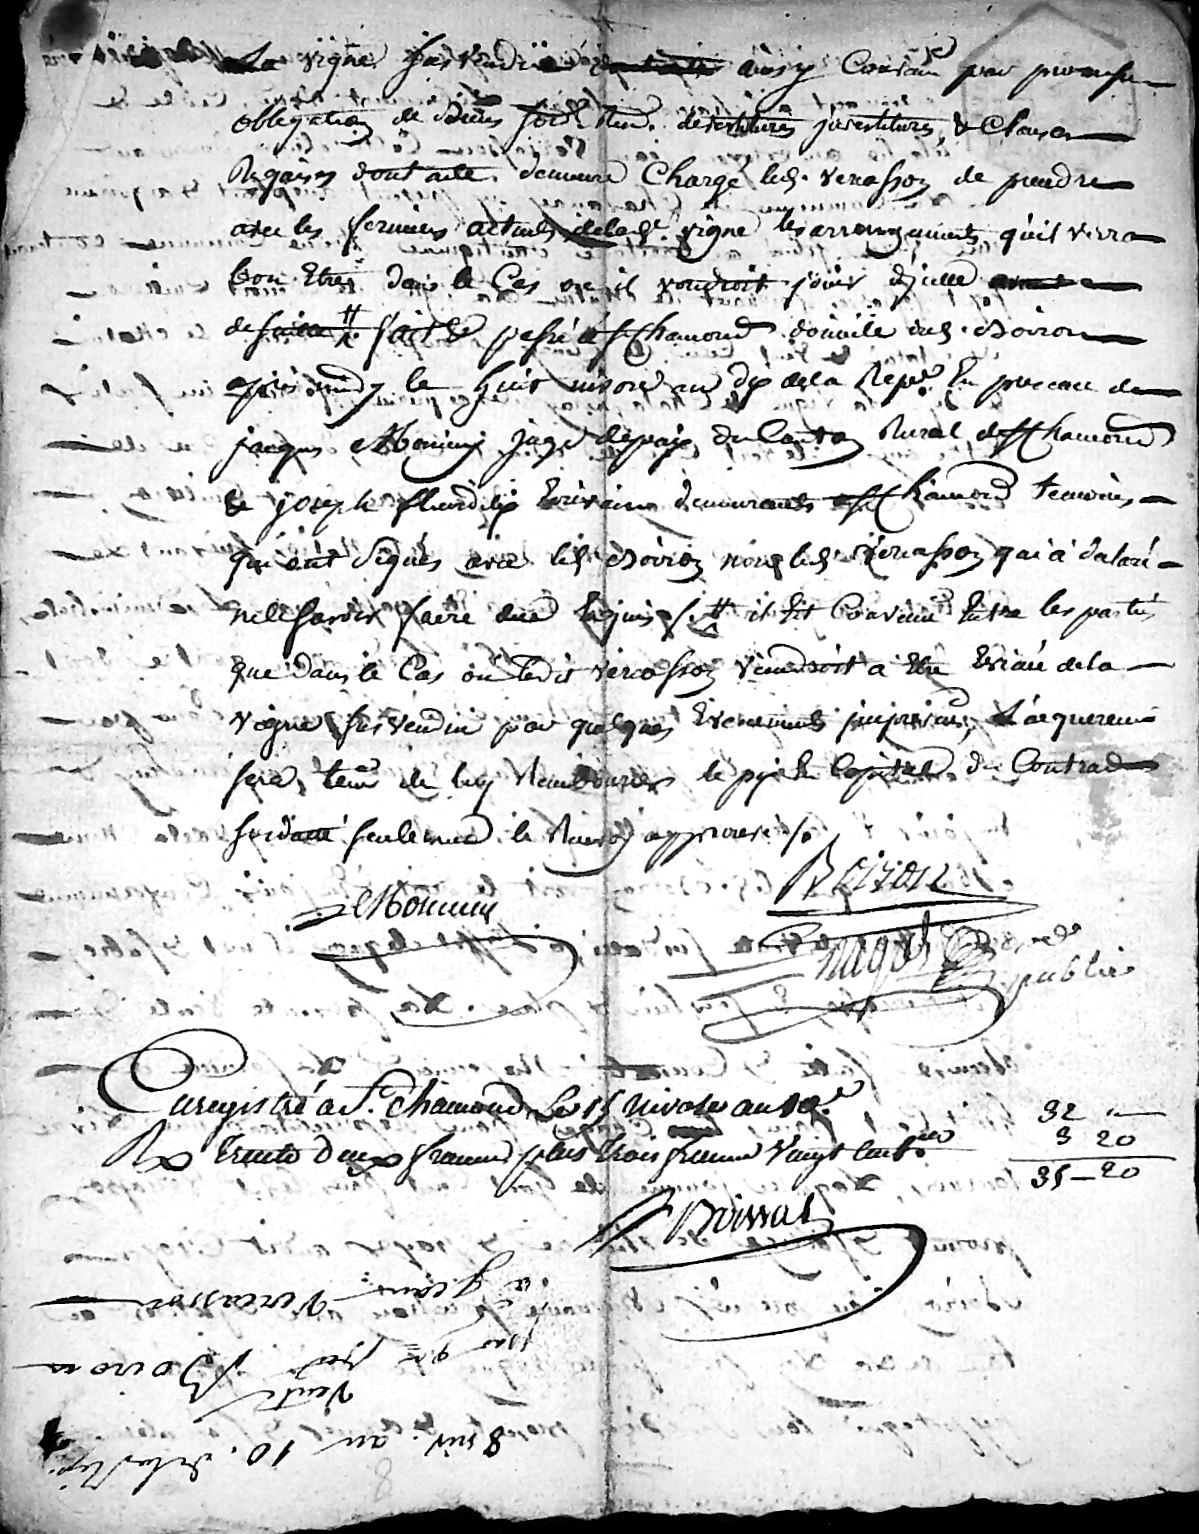 La vigne sus vendue ainsy Convenu par promesse
obligation de Biens soumi. devestitures investitures & Clauses
Requises dont acte demeure Chargé led. Vercasson de prendre
avec les fermiers actuels delad. vigne les arrangements qu'il verra
bon Etre dans le Cas ou il voudroit jouir d'jcelle
de suitte # fait & passé a St Chamond domicile dud. Boiron
après midy le huit nivose an dix de la Repe. En presence de
jacques Monmey juge depaix du Canton Rural de St Chamond
& joseph fleurdelix Ecrivain demeurants a St Chamond temoins
qui ont Signés avec led. Boiron non led. Vercasson qui a declaré
ne le Savoir faire de ce Enquis # il Est Convenu Entre les parties
que dans le Cas où ledit Vercasson viendroit a Etre Evincé de la
vigne sus vendue par quelques Evenements imprevus, L'acquereur
sera tenu de luy Rembourser le prix Capital du Contrad
seulement le Renvoy approuvé /.
Boiron
Monmey
public
Enregistré a St. Chamond Le 15 Nivose an 10e.
Rx trente deux francs plus trois francs Vingt cent.
32 —
3 20
35—20
Boissat
8 niv. an 10. de la Rep.
Vente
par Boiron
a Vercasson